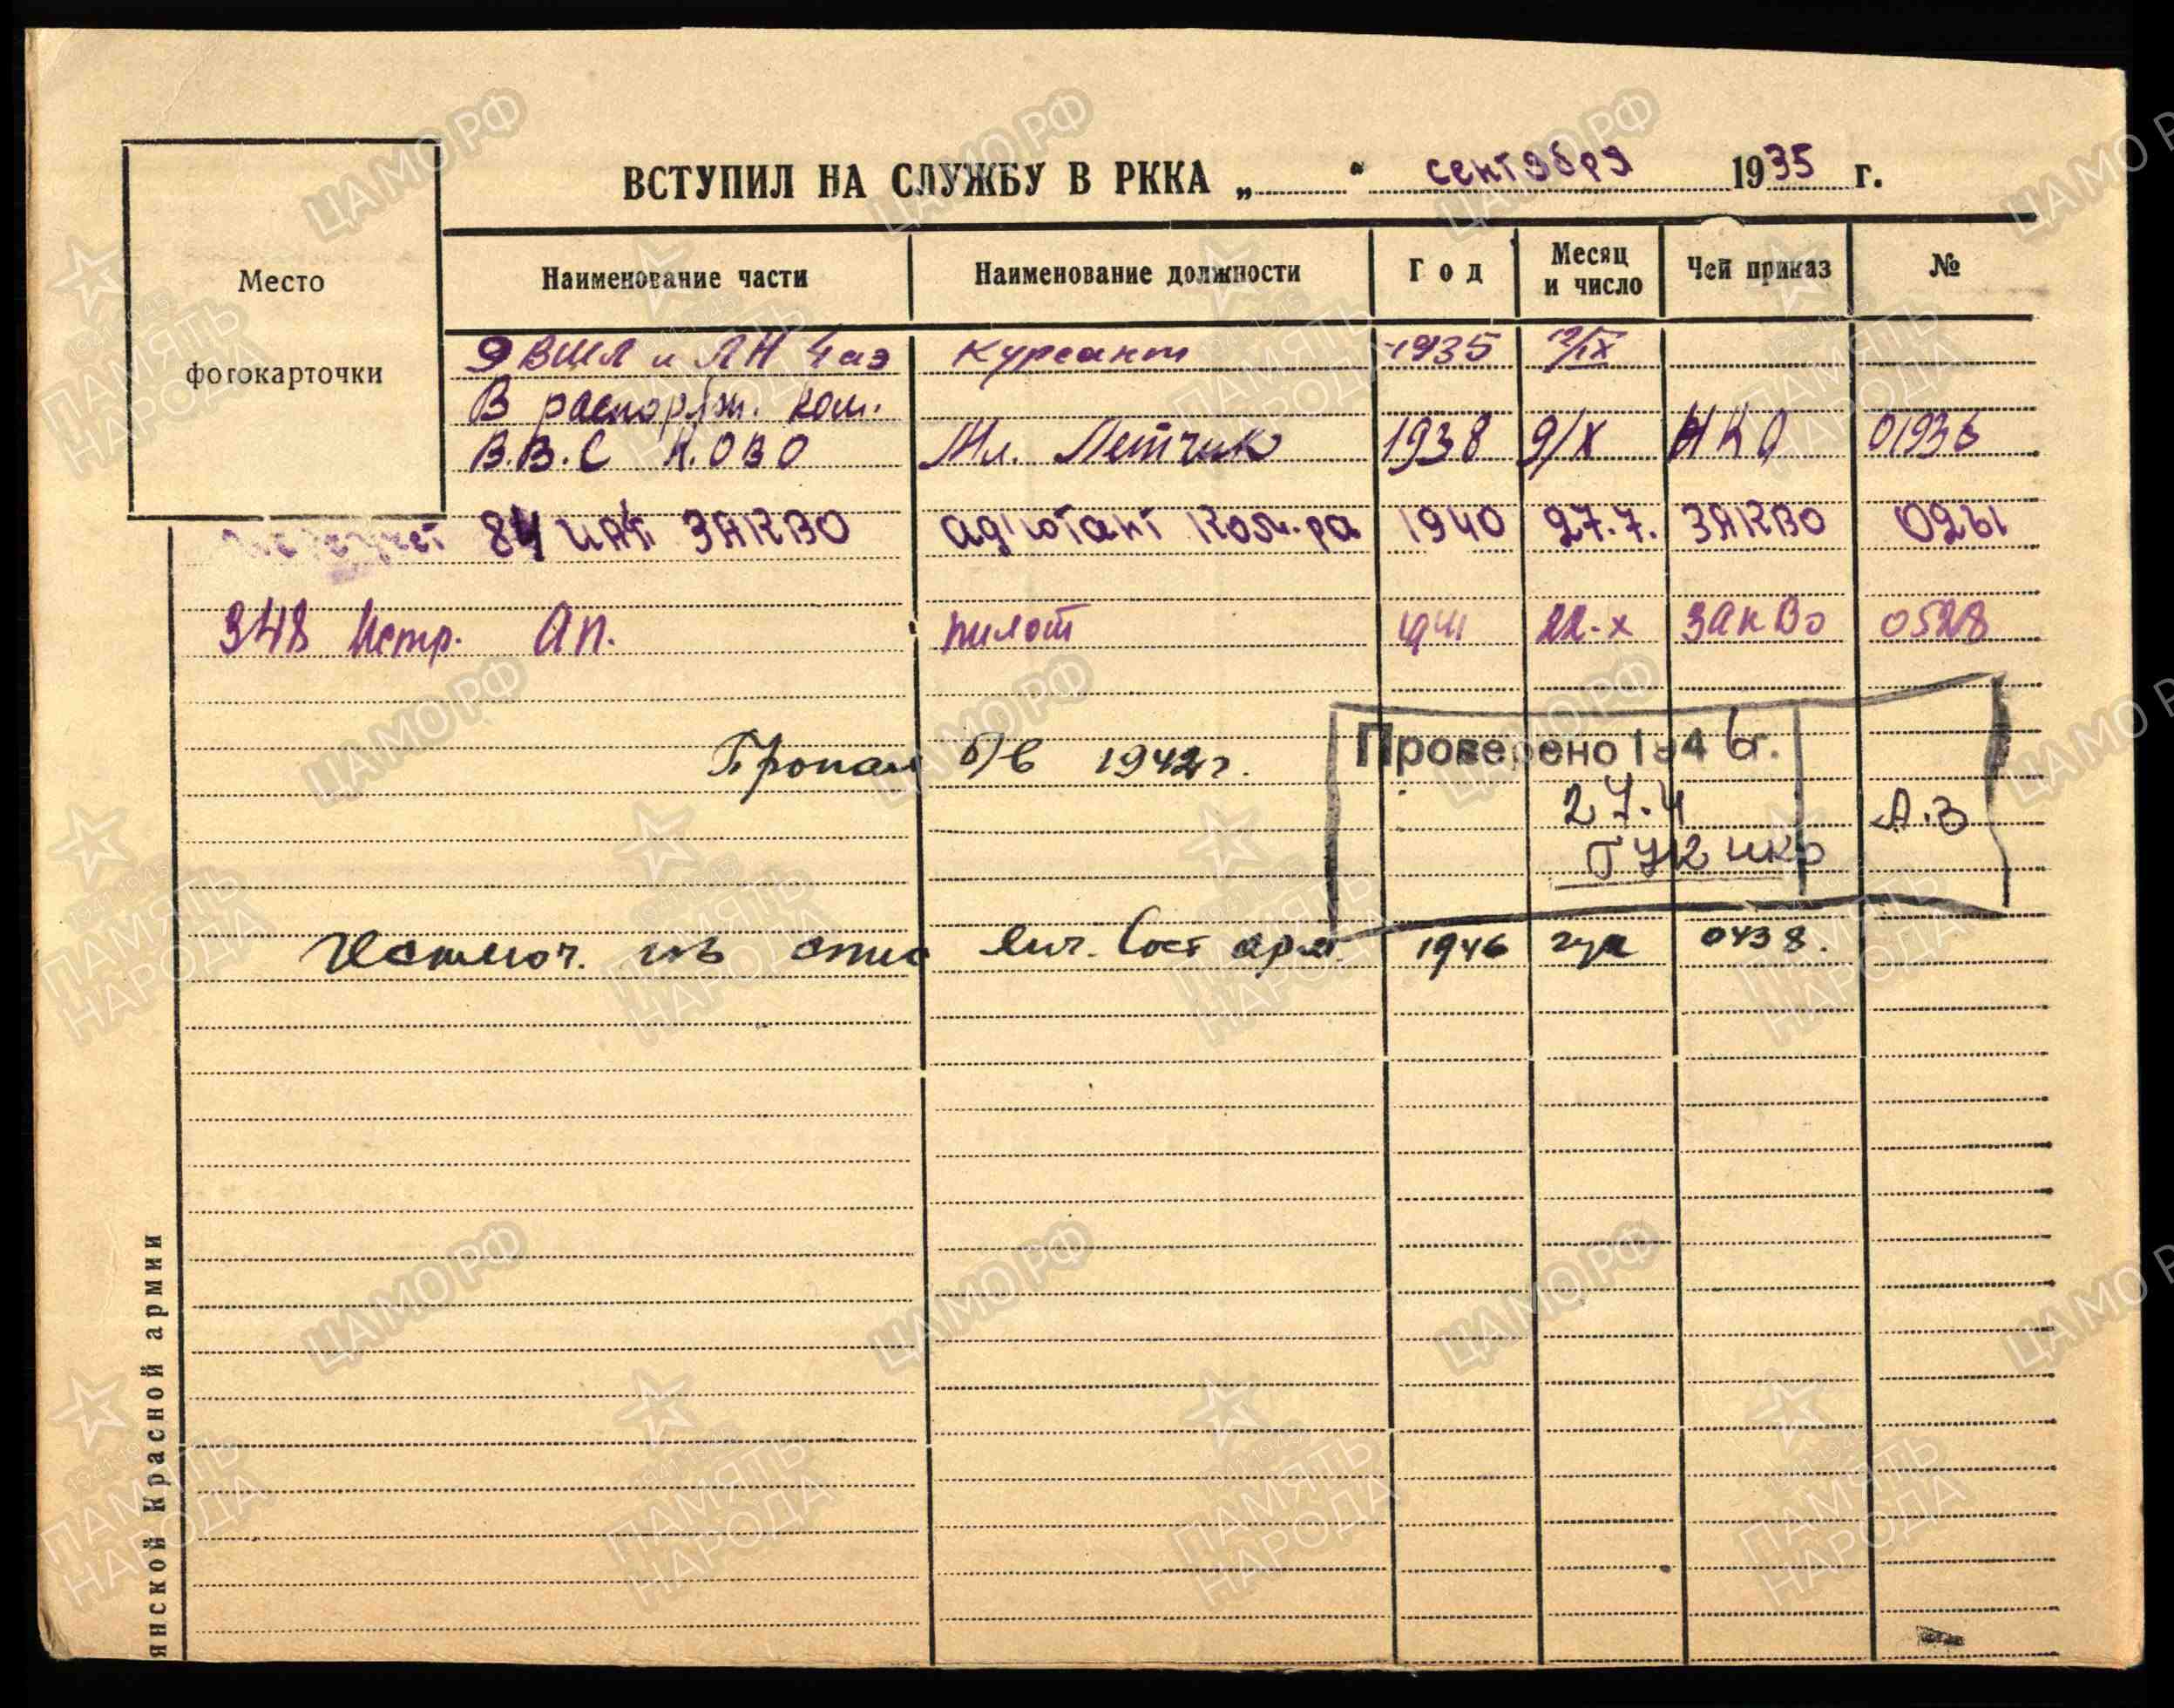 ВСТУПИЛ НА СЛУЖБУ В РККА „ “ сентября 1935 г.
Место
фотокарточки
Наименование части Наименование должности Год Месяц и число Чей приказ №
9 ВШЛ и ЛН 4 аэ Курсант 1935 12/IX
В распоряж. ком.
В.В.С К.ОВО Мл. Летчик 1938 9/X НКО 01936
84 ИАП ЗАКВО адъютант Ком-ра 1940 27.7. ЗАКВО 0261
348 Истр. Ап. пилот 1941 22-X ЗакВо 0528
Пропал б/в 1942 г.
Проверено 1946 г.
27.4 А.З
ГУК
Исключ. из спис лич. Сост арм. 1946 гук 0438.
янской Красной армии
ЦАМО РФ
ПАМЯТЬ
НАРОДА